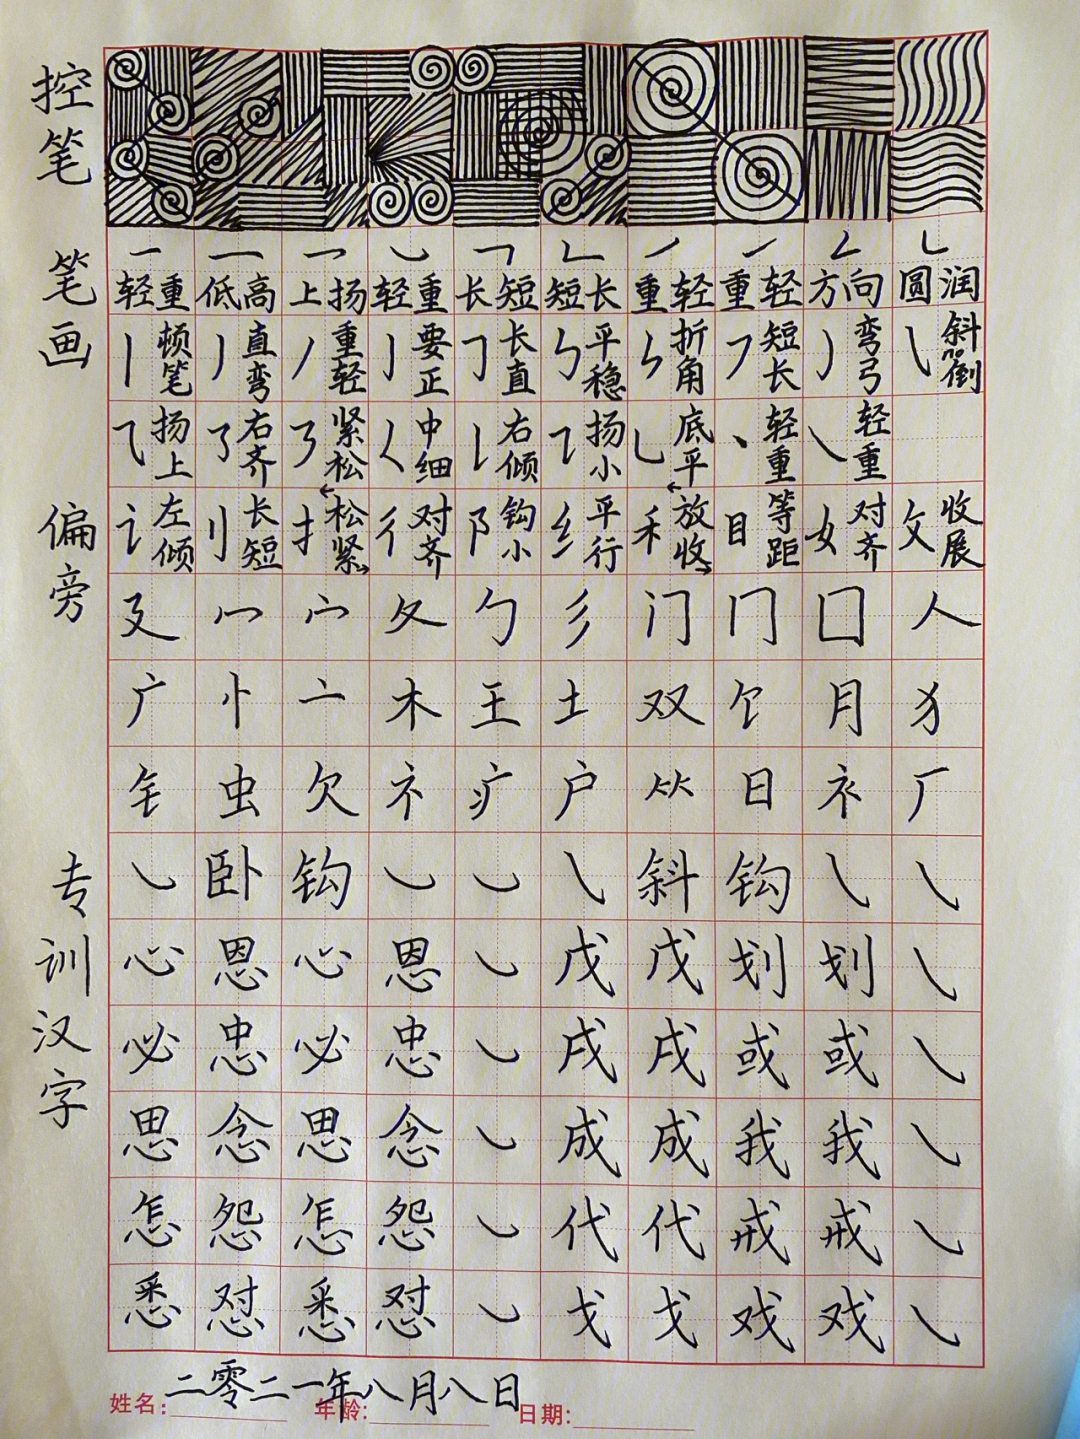 控笔
一 一 一 ㇃ ㇕ ㇗ ㇀ ㇀ ㇜ ㇄
笔画
轻重 低高 上扬 轻重 长短 短长 重轻 重轻 方向 圆润
丨 顿笔 丿 直弯 丿 重轻 亅 要正 ㇆ 长直 ㇉ 平稳 ㇞ 折角 ㇇ 短长 ㇁ 弯弓 ㇂ 斜70倒
⺄ 扬上 ㇌ 右齐 ㇋ 紧松 ㇛ 中细 ㇙ 右倾 ㇊ 扬小 ㇄ 底平 丶 轻重 ㇏ 轻重
偏旁
讠 左倾 刂 长短 扌 松紧 彳 对齐 阝 钩小 纟 平行 禾 放收 目 等距 女 对齐 攵 收展
廴 冖 宀 夂 勹 彡 门 冂 囗 人
广 忄 亠 木 王 土 双 饣 月 犭
钅 虫 欠 礻 疒 户 𥫗 日 衤 厂
专训汉字
㇃ 卧 钩 ㇃ ㇃ ㇂ 斜 钩 ㇂ ㇂
心 恩 心 恩 ㇃ 戊 戊 划 划 ㇂
必 忠 必 忠 ㇃ 戌 戌 或 或 ㇂
思 念 思 念 ㇃ 成 成 我 我 ㇂
怎 怨 怎 怨 ㇃ 代 代 戒 戒 ㇂
悉 怼 悉 怼 ㇃ 戈 戈 戏 戏 ㇂
二零二一年八月八日
姓名: 年龄: 日期: